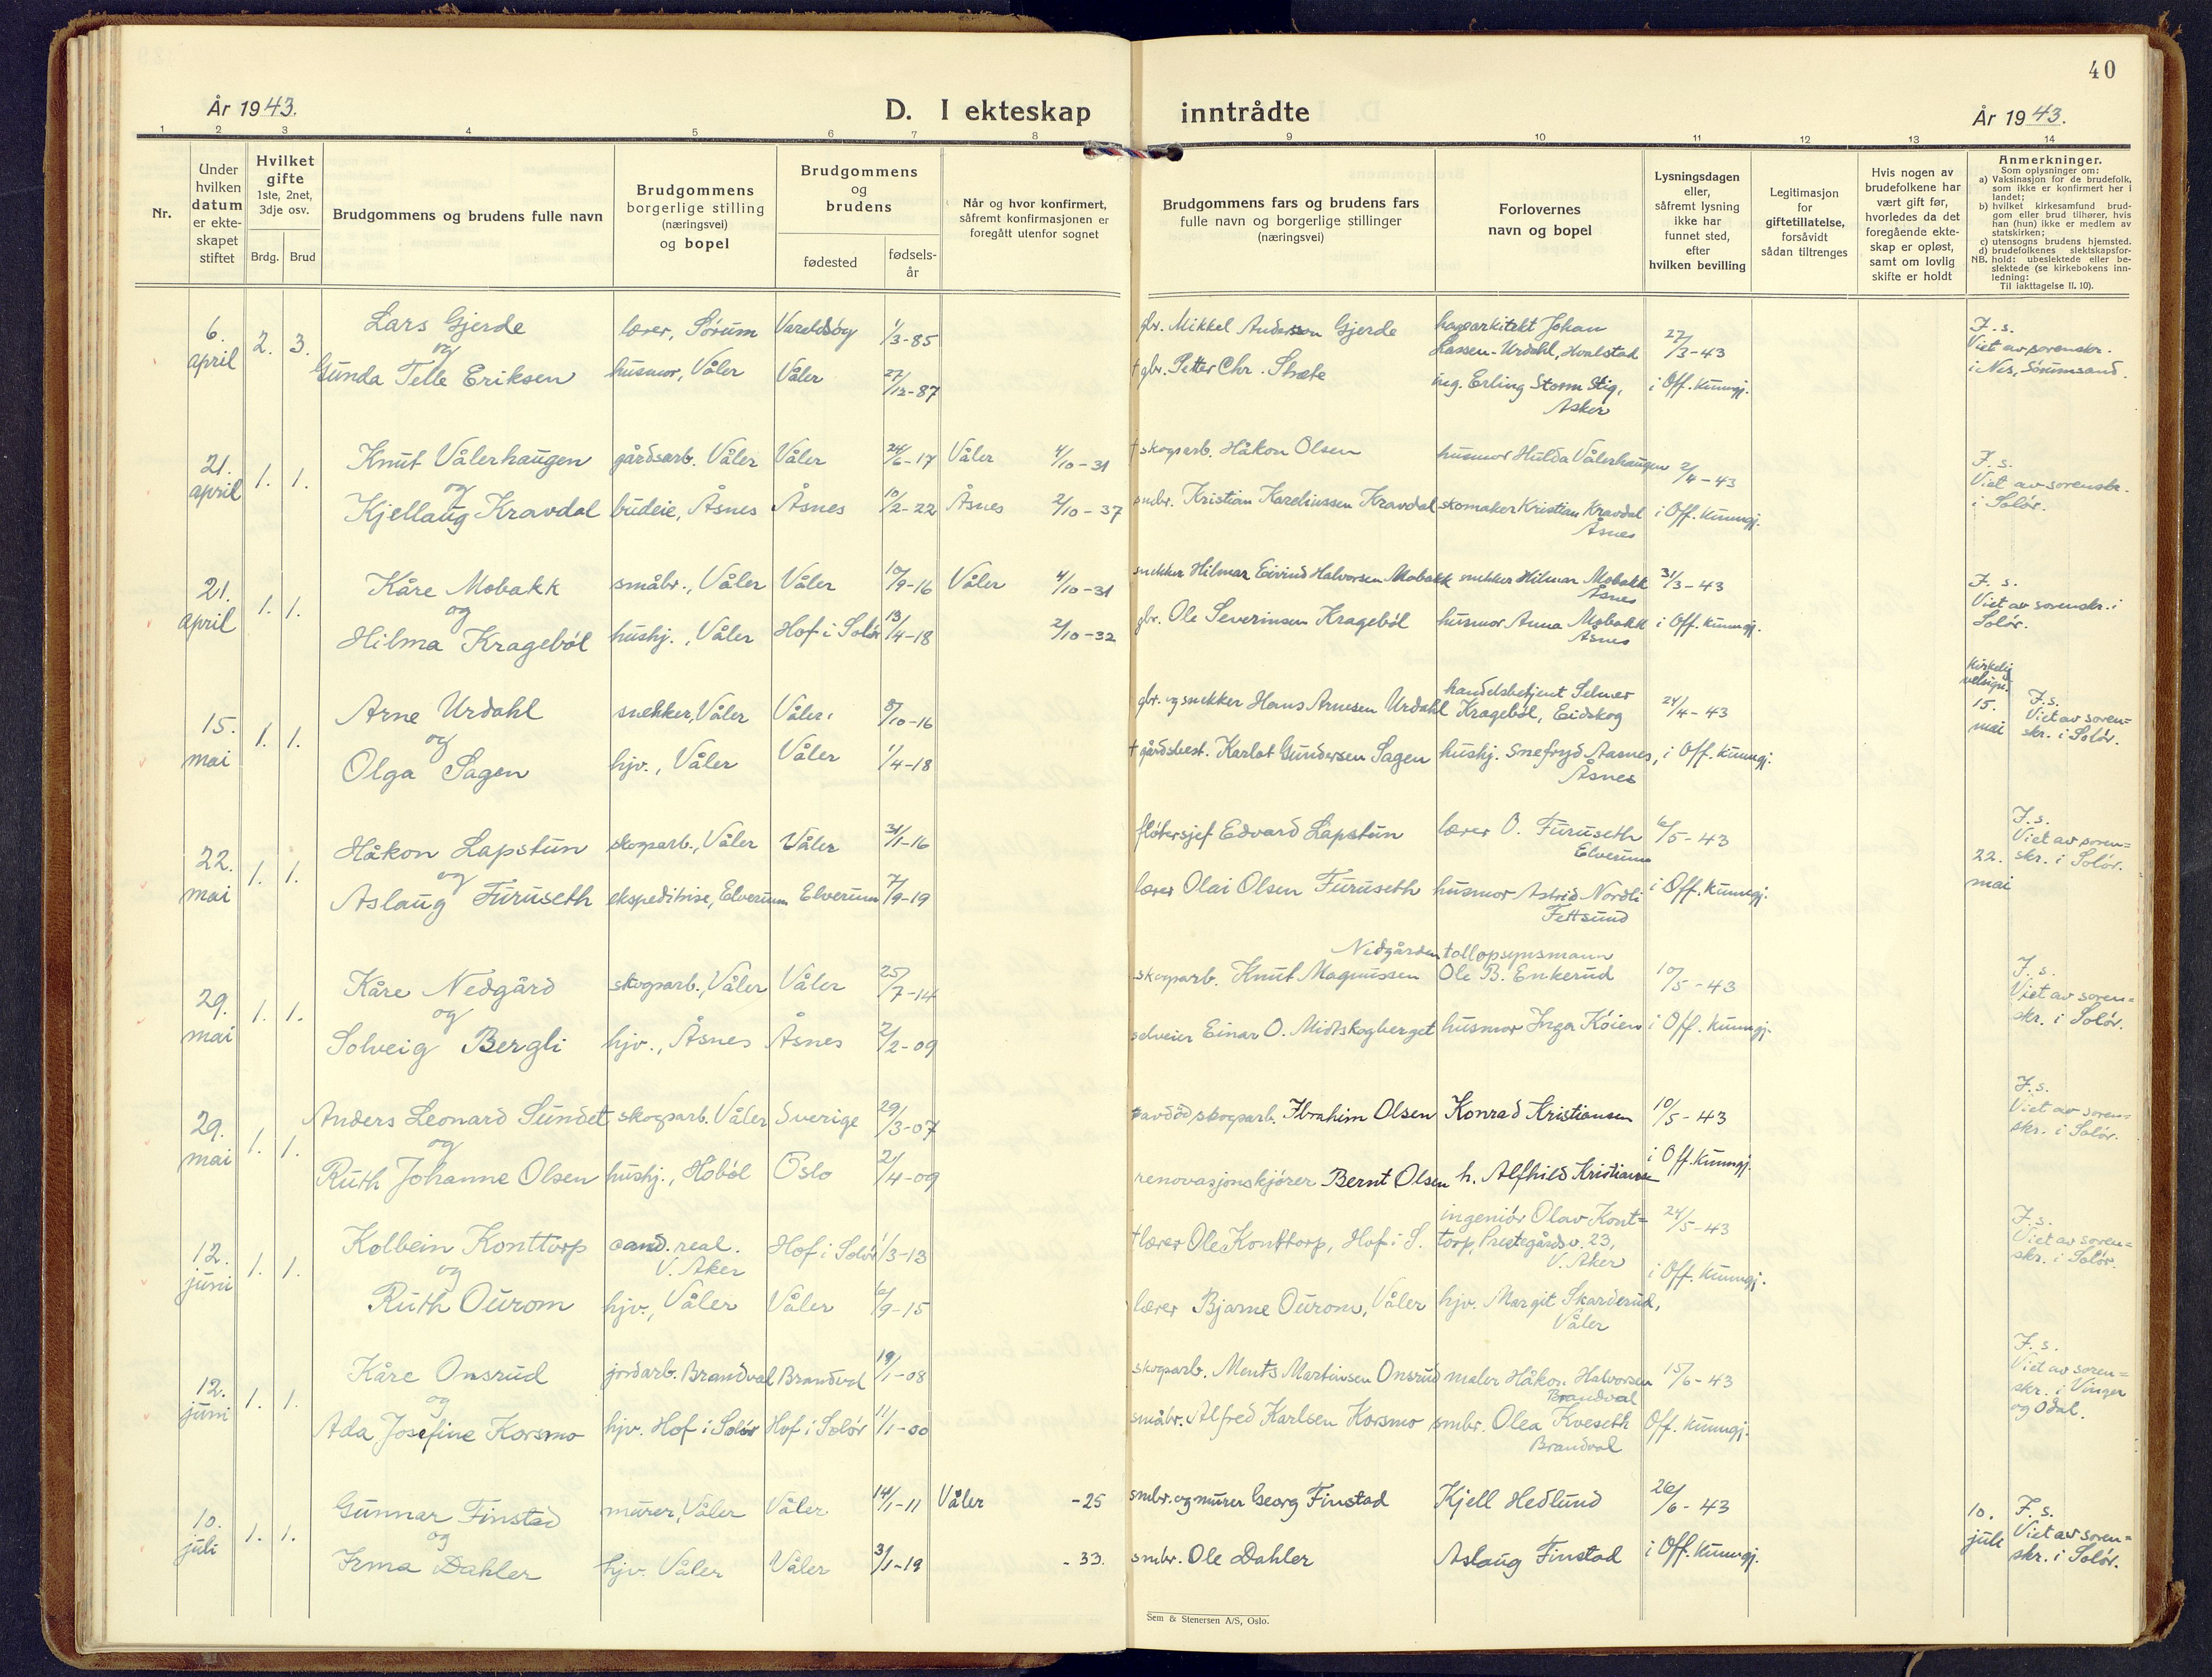 40
År 1943.
D. I ekteskap inntrådte
År 1943.
1 2 3 4 5 6 7 8 9 10 11 12 13 14
Nr.
Under
hvilken
datum
er ekte-
skapet
stiftet
Hvilket
gifte
1ste, 2net,
3dje osv.
Brdg. Brud
Brudgommens og brudens fulle navn
Brudgommens
borgerlige stilling
(næringsvei)
og bopel
Brudgommens
og
brudens
fødested
fødsels-
år
Når og hvor konfirmert,
såfremt konfirmasjonen er
foregått utenfor sognet
Brudgommens fars og brudens fars
fulle navn og borgerlige stillinger
(næringsvei)
Forlovernes
navn og bopel
Lysningsdagen
eller,
såfremt lysning
ikke har
funnet sted,
efter
hvilken bevilling
Legitimasjon
for
giftetillatelse,
forsåvidt
sådan tiltrenges
Hvis nogen av
brudefolkene har
vært gift før,
hvorledes da det
foregående ekte-
skap er opløst,
samt om lovlig
skifte er holdt
Anmerkninger.
Som oplysninger om:
a) Vaksinasjon for de brudefolk,
som ikke er konfirmert her i
landet;
b) hvilket kirkesamfund brud-
gom eller brud tilhører, hvis
han (hun) ikke er medlem av
statskirken;
c) utensogns brudens hjemsted.
d) brudefolkenes slektskapsfor-
NB. hold: ubeslektede eller be-
slektede (se kirkebokens inn-
ledning:
Til iakttagelse II, 10).
6.
april
2. 3.
Lars Gjerde
og
Gunda Telle Eriksen
lærer, Sørum
husmor, Våler
Våler
1/3-85
27/12-87
gbr. Mikkel Anderson Gjerde
† gbr. Petter Chr. Stræte
hagearkitekt Johan
Lassen-Urdahl, Hvalstad
ing. Erling Storm Stig,
Asker
27/3-43
i Off. kunngj.
F. s.
Viet av sorenskr.
i Nes, Sørumsand.
21.
april
1. 1.
Knut Vålerhaugen
og
Kjellaug Kravdal
gårdsarb. Våler
budeie, Åsnes
Våler
Åsnes
24/6-17
10/2-22
Våler 4/10-31
Åsnes 2/10-37
† skogsarb. Håkon Olsen
smbr. Kristian Kareliussen Kravdal
husmor Hulda Vålerhaugen
skomaker Kristian Kravdal
Åsnes
2/4-43
i Off. kunngj.
F. s.
Viet av sorenskr.
i Solør.
21.
april
1. 1.
Kåre Mobakk
og
Hilma Kragebøl
småbr., Våler
hushj., Våler
Våler
Hof i Solør
10/9-16
13/4-18
Våler 4/10-31
2/10-32
snekker Hilmar Eivind Halvorsen Mobakk
gbr. Ole Severinsen Kragebøl
snekker Hilmar Mobakk
Åsnes
husmor Anna Mobakk
Åsnes
31/3-43
i Off. kunngj.
F. s.
Viet av sorenskr. i
Solør.
15.
mai
1. 1.
Arne Urdahl
og
Olga Sagen
snekker, Våler
hjv., Våler
Våler
Våler
8/10-16
1/4-18
gbr. og snekker Hans Arnesen Urdahl
† gårdsbest. Karlot Gundersen Sagen
handelsbetjent Selmer
Kragebøl, Eidskog
hushj. Snefryd Aasnes,
Åsnes
24/4-43
i Off. kunngj.
kirkelig
velsign.
15.
mai
F.s.
Viet av soren=
skr. i Solør.
22.
mai
1. 1.
Håkon Lapstun
og
Aslaug Furuseth
skogsarb., Våler
ekspeditrise, Elverum
Våler
Elverum
31/1-16
7/9-19
fløtersjef Edvard Lapstun
lærer Olai Olsen Furuseth
lærer O. Furuseth
Elverum
husmor Astrid Nordli
Fettsund
6/5-43
i Off. kunngj.
22.
mai
F. s.
Viet av soren=
skr. i Solør.
29.
mai
1. 1.
Kåre Nedgård
og
Solveig Bergli
skogsarb., Våler
hjv., Åsnes
Våler
Åsnes
25/7-14
2/2-09
Nedgården
skogsarb. Knut Magnussen
selveier Einar O. Midtskogberget
tollopsynsmann
Ole B. Enkerud
husmor Inga Køien
10/5-43
i Off. kunngj.
F. s.
Viet av soren=
skr. i Solør.
29.
mai
1. 1.
Anders Leonard Sundet
og
Ruth Johanne Olsen
skogsarb. Våler
hushj., Hobøl
Sverige
Oslo
29/3-07
21/4-09
avdød skogsarb. Ibrahim Olsen
renovasjonskjører Bernt Olsen
Konrad Kristiansen
h. Alfhild Kristiansen
10/5-43
i Off. kunngj.
F. s.
Viet av soren=
skr. i Solør.
12.
juni
1. 1.
Kolbein Konttorp
og
Ruth Ourom
cand. real.
V. Aker
hjv., Våler
Hof i Solør
Våler
1/3-13
6/9-15
† lærer Ole Konttorp, Hof i S.
lærer Bjarne Ourom, Våler
ingeniør Olav Kont=
torp, Prestegårdsv. 23,
V. Aker
hjv. Margit Skarderud,
Våler
24/5-43
i Off. kunngj.
F. s.
Viet av soren=
skr. i Solør.
12.
juni
1. 1.
Kåre Onsrud
og
Ada Josefine Korsmo
jordarb. Brandval
hjv. Hof i Solør
Brandval
Hof i Solør
19/1-08
11/1-00
skogsarb. Ments Martinsen Onsrud
småbr. Alfred Karlsen Korsmo
maler Håkon Halvorsen
Brandval
smbr. Olea Kveseth
Brandval
15/6-43
Off. kunngj.
F. s.
Viet av soren=
skr. i Vinger
og Odal.
10.
juli
1. 1.
Gunnar Finstad
og
Irma Dahler
murer, Våler
hjv. Våler
Våler
Våler
14/1-11
3/1-19
Våler -25
-33.
smbr. og murer Georg Finstad
smbr. Ole Dahler
Kjell Hedlund
Aslaug Finstad
26/6-43
i Off. kunngj.
10.
juli
F. s.
Viet av soren=
skr. i Solør.
Sem & Stenersen A/S, Oslo.